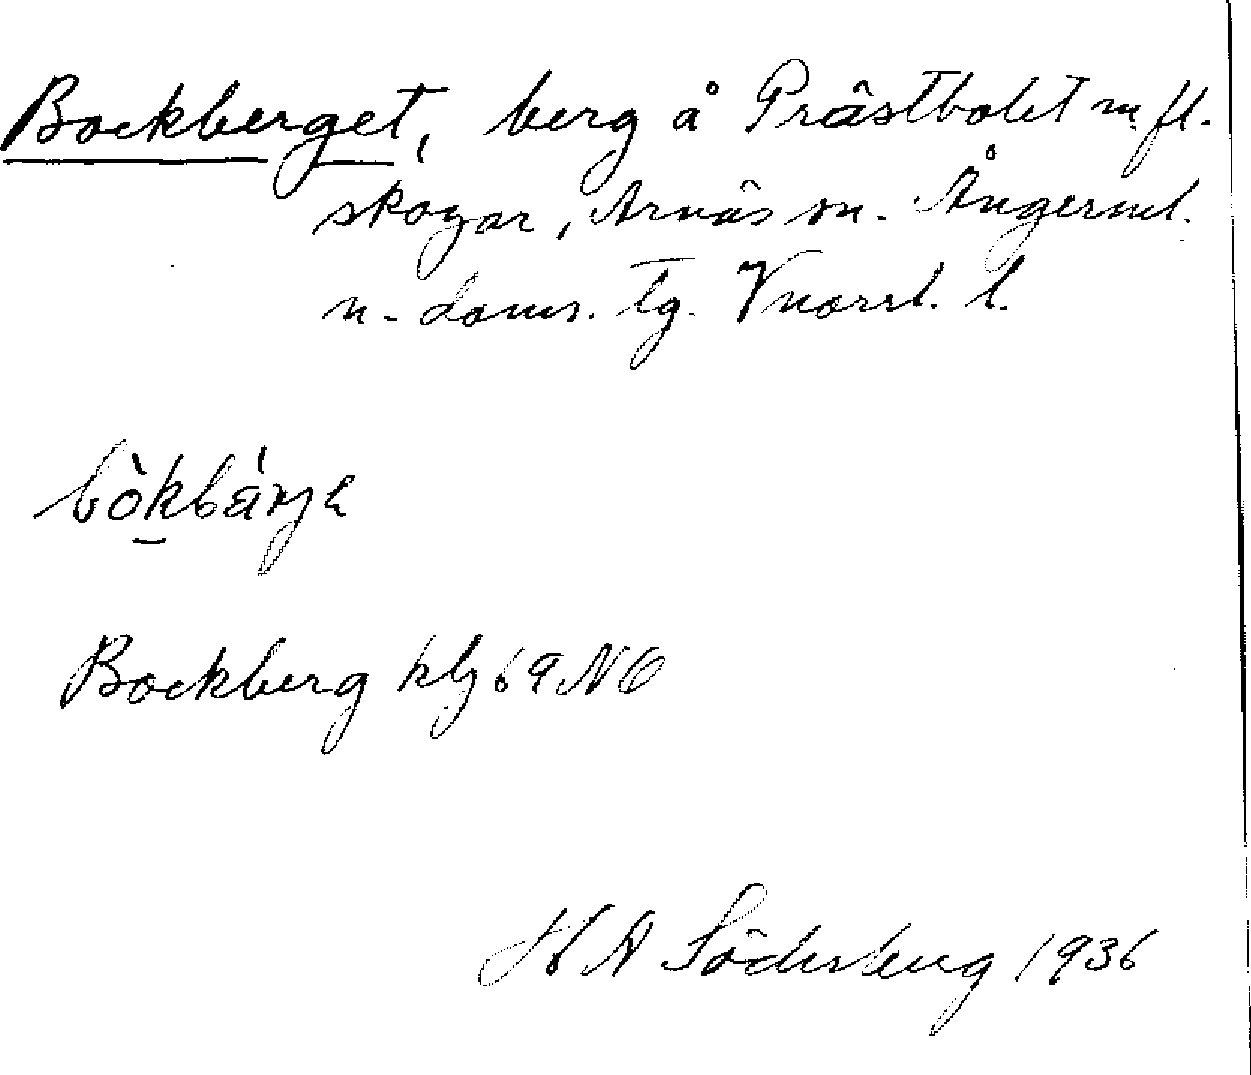 Bockberget, berg å Prästbolet m. fl.
skogar, Arnäs sn. Ångerml.
n. doms. tg. Vnorrl. l.
bòkbárje
Bockberg klg 69 NO
H A Söderberg 1936